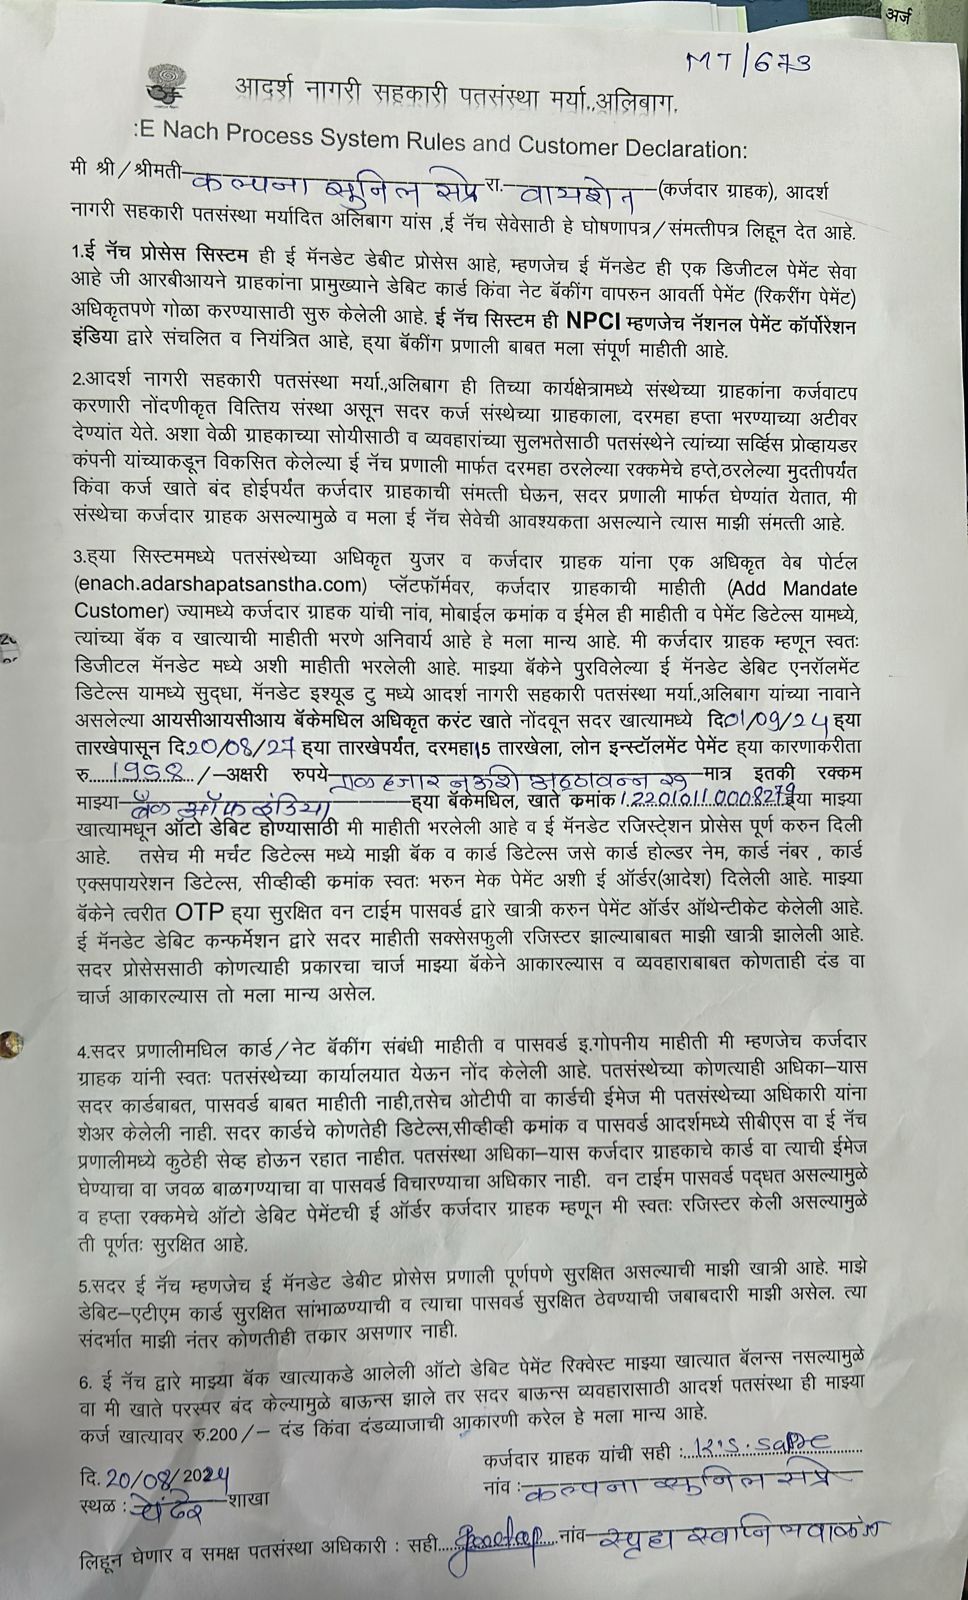 अर्ज
MT/673
आदर्श नागरी सहकारी पतसंस्था मर्या.,अलिबाग.
:E Nach Process System Rules and Customer Declaration:
मी श्री/श्रीमती-कल्पना सुनिल सप्रे रा.-वायशेत-(कर्जदार ग्राहक), आदर्श
नागरी सहकारी पतसंस्था मर्यादित अलिबाग यांस ,ई नॅच सेवेसाठी हे घोषणापत्र/संमत्तीपत्र लिहून देत आहे.
1.ई नॅच प्रोसेस सिस्टम ही ई मॅनडेट डेबीट प्रोसेस आहे, म्हणजेच ई मॅनडेट ही एक डिजीटल पेमेंट सेवा
आहे जी आरबीआयने ग्राहकांना प्रामुख्याने डेबिट कार्ड किंवा नेट बॅकींग वापरुन आवर्ती पेमेंट (रिकरींग पेमेंट)
अधिकृतपणे गोळा करण्यासाठी सुरु केलेली आहे. ई नॅच सिस्टम ही NPCI म्हणजेच नॅशनल पेमेंट कॉर्पोरेशन
इंडिया द्वारे संचलित व नियंत्रित आहे, ह्या बॅकींग प्रणाली बाबत मला संपूर्ण माहीती आहे.
2.आदर्श नागरी सहकारी पतसंस्था मर्या.,अलिबाग ही तिच्या कार्यक्षेत्रामध्ये संस्थेच्या ग्राहकांना कर्जवाटप
करणारी नोंदणीकृत वित्तिय संस्था असून सदर कर्ज संस्थेच्या ग्राहकाला, दरमहा हप्ता भरण्याच्या अटीवर
देण्यांत येते. अशा वेळी ग्राहकाच्या सोयीसाठी व व्यवहारांच्या सुलभतेसाठी पतसंस्थेने त्यांच्या सर्व्हिस प्रोव्हायडर
कंपनी यांच्याकडून विकसित केलेल्या ई नॅच प्रणाली मार्फत दरमहा ठरलेल्या रक्कमेचे हप्ते,ठरलेल्या मुदतीपर्यंत
किंवा कर्ज खाते बंद होईपर्यंत कर्जदार ग्राहकाची संमत्ती घेऊन, सदर प्रणाली मार्फत घेण्यांत येतात, मी
संस्थेचा कर्जदार ग्राहक असल्यामुळे व मला ई नॅच सेवेची आवश्यकता असल्याने त्यास माझी संमत्ती आहे.
3.ह्या सिस्टममध्ये पतसंस्थेच्या अधिकृत युजर व कर्जदार ग्राहक यांना एक अधिकृत वेब पोर्टल
(enach.adarshapatsanstha.com) प्लॅटफॉर्मवर, कर्जदार ग्राहकाची माहीती (Add Mandate
Customer) ज्यामध्ये कर्जदार ग्राहक यांची नांव, मोबाईल क्रमांक व ईमेल ही माहीती व पेमेंट डिटेल्स यामध्ये,
त्यांच्या बॅक व खात्याची माहीती भरणे अनिवार्य आहे हे मला मान्य आहे. मी कर्जदार ग्राहक म्हणून स्वतः
डिजीटल मॅनडेट मध्ये अशी माहीती भरलेली आहे. माझ्या बॅकेने पुरविलेल्या ई मॅनडेट डेबिट एनरॉलमेंट
डिटेल्स यामध्ये सुद्धा, मॅनडेट इश्यूड टु मध्ये आदर्श नागरी सहकारी पतसंस्था मर्या.,अलिबाग यांच्या नावाने
असलेल्या आयसीआयसीआय बॅकेमधिल अधिकृत करंट खाते नोंदवून सदर खात्यामध्ये दि01/09/24 ह्या
तारखेपासून दि.20/08/27 ह्या तारखेपर्यंत, दरमहा15 तारखेला, लोन इन्स्टॉलमेंट पेमेंट ह्या कारणाकरीता
रु....1958..../-अक्षरी रुपये-एक हजार नऊशे अठ्ठावन्न रु-मात्र इतकी रक्कम
माझ्या-बँक ऑफ इंडिया-ह्या बॅकेमधिल, खाते क्रमांक122010110008279ह्या माझ्या
खात्यामधून ऑटो डेबिट होण्यासाठी मी माहीती भरलेली आहे व ई मॅनडेट रजिस्टे्शन प्रोसेस पूर्ण करुन दिली
आहे. तसेच मी मर्चंट डिटेल्स मध्ये माझी बॅक व कार्ड डिटेल्स जसे कार्ड होल्डर नेम, कार्ड नंबर , कार्ड
एक्सपायरेशन डिटेल्स, सीव्हीव्ही क्रमांक स्वतः भरुन मेक पेमेंट अशी ई ऑर्डर(आदेश) दिलेली आहे. माझ्या
बॅकेने त्वरीत OTP ह्या सुरक्षित वन टाईम पासवर्ड द्वारे खात्री करुन पेमेंट ऑर्डर ऑथेन्टीकेट केलेली आहे.
ई मॅनडेट डेबिट कन्फर्मेशन द्वारे सदर माहीती सक्सेसफुली रजिस्टर झाल्याबाबत माझी खात्री झालेली आहे.
सदर प्रोसेससाठी कोणत्याही प्रकारचा चार्ज माझ्या बॅकेने आकारल्यास व व्यवहाराबाबत कोणताही दंड वा
चार्ज आकारल्यास तो मला मान्य असेल.
4.सदर प्रणालीमधिल कार्ड/नेट बॅकींग संबंधी माहीती व पासवर्ड इ.गोपनीय माहीती मी म्हणजेच कर्जदार
ग्राहक यांनी स्वतः पतसंस्थेच्या कार्यालयात येऊन नोंद केलेली आहे. पतसंस्थेच्या कोणत्याही अधिका-यास
सदर कार्डबाबत, पासवर्ड बाबत माहीती नाही,तसेच ओटीपी वा कार्डची ईमेज मी पतसंस्थेच्या अधिकारी यांना
शेअर केलेली नाही. सदर कार्डचे कोणतेही डिटेल्स,सीव्हीव्ही क्रमांक व पासवर्ड आदर्शमध्ये सीबीएस वा ई नॅच
प्रणालीमध्ये कुठेही सेव्ह होऊन रहात नाहीत. पतसंस्था अधिका-यास कर्जदार ग्राहकाचे कार्ड वा त्याची ईमेज
घेण्याचा वा जवळ बाळगण्याचा वा पासवर्ड विचारण्याचा अधिकार नाही. वन टाईम पासवर्ड पद्धत असल्यामुळे
व हप्ता रक्कमेचे ऑटो डेबिट पेमेंटची ई ऑर्डर कर्जदार ग्राहक म्हणून मी स्वतः रजिस्टर केली असल्यामुळे
ती पूर्णतः सुरक्षित आहे.
5.सदर ई नॅच म्हणजेच ई मॅनडेट डेबीट प्रोसेस प्रणाली पूर्णपणे सुरक्षित असल्याची माझी खात्री आहे. माझे
डेबिट-एटीएम कार्ड सुरक्षित सांभाळण्याची व त्याचा पासवर्ड सुरक्षित ठेवण्याची जबाबदारी माझी असेल. त्या
संदर्भात माझी नंतर कोणतीही तकार असणार नाही.
6. ई नॅच द्वारे माझ्या बॅक खात्याकडे आलेली ऑटो डेबिट पेमेंट रिक्वेस्ट माझ्या खात्यात बॅलन्स नसल्यामुळे
वा मी खाते परस्पर बंद केल्यामुळे बाऊन्स झाले तर सदर बाऊन्स व्यवहारासाठी आदर्श पतसंस्था ही माझ्या
कर्ज खात्यावर रु.200/- दंड किंवा दंडव्याजाची आकारणी करेल हे मला मान्य आहे.
कर्जदार ग्राहक यांची सही :K.S. Sapre
दि.20/08/2024
नांव :-कल्पना सुनिल सप्रे
स्थळ :-चेंढरे-शाखा
लिहून घेणार व समक्ष पतसंस्था अधिकारी : सही.... नांव-स्पृहा स्वाप्निल